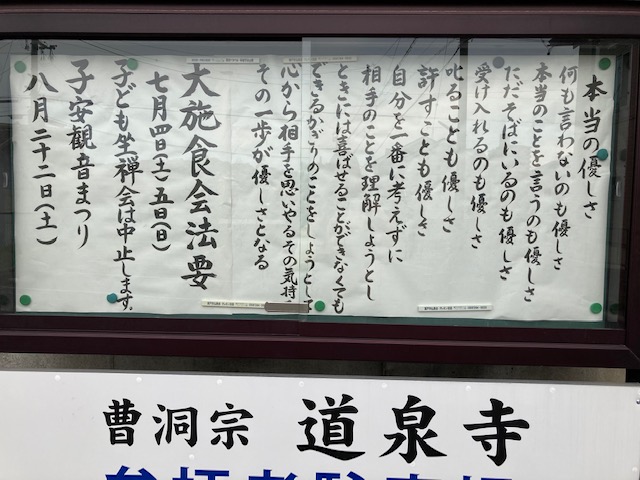 本当の優しさ
何も言わないのも優しさ
本当のことを言うのも優しさ
ただそばにいるのも優しさ
受け入れるのも優しさ
叱ることも優しさ
許すことも優しさ
自分を一番に考えずに
相手のことを理解しようとし
ときには喜ばせることができなくても
できるかぎりのことをしようとして
心から相手を思いやるその気持
その一歩が優しさとなる
大施食会法要
七月四日(土)五日(日)
子ども坐禅会は中止します。
子安観音まつり
八月二十二日(土)
曹洞宗 道泉寺